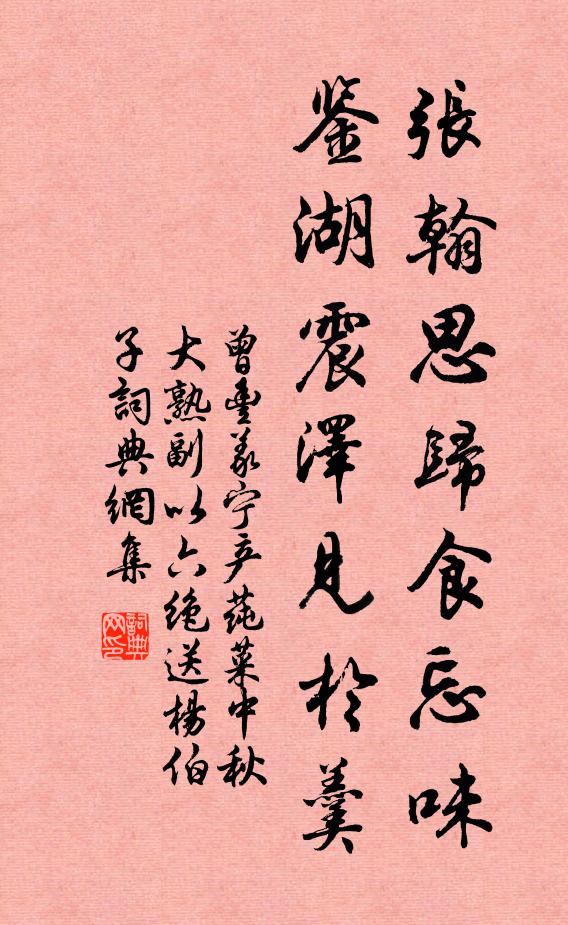 張翰思歸食忘味
鉴湖震澤見於羹
曾豐義宁产莼菜中秋
大熟副以六绝送楊伯
子詞典網集
詞典
网印